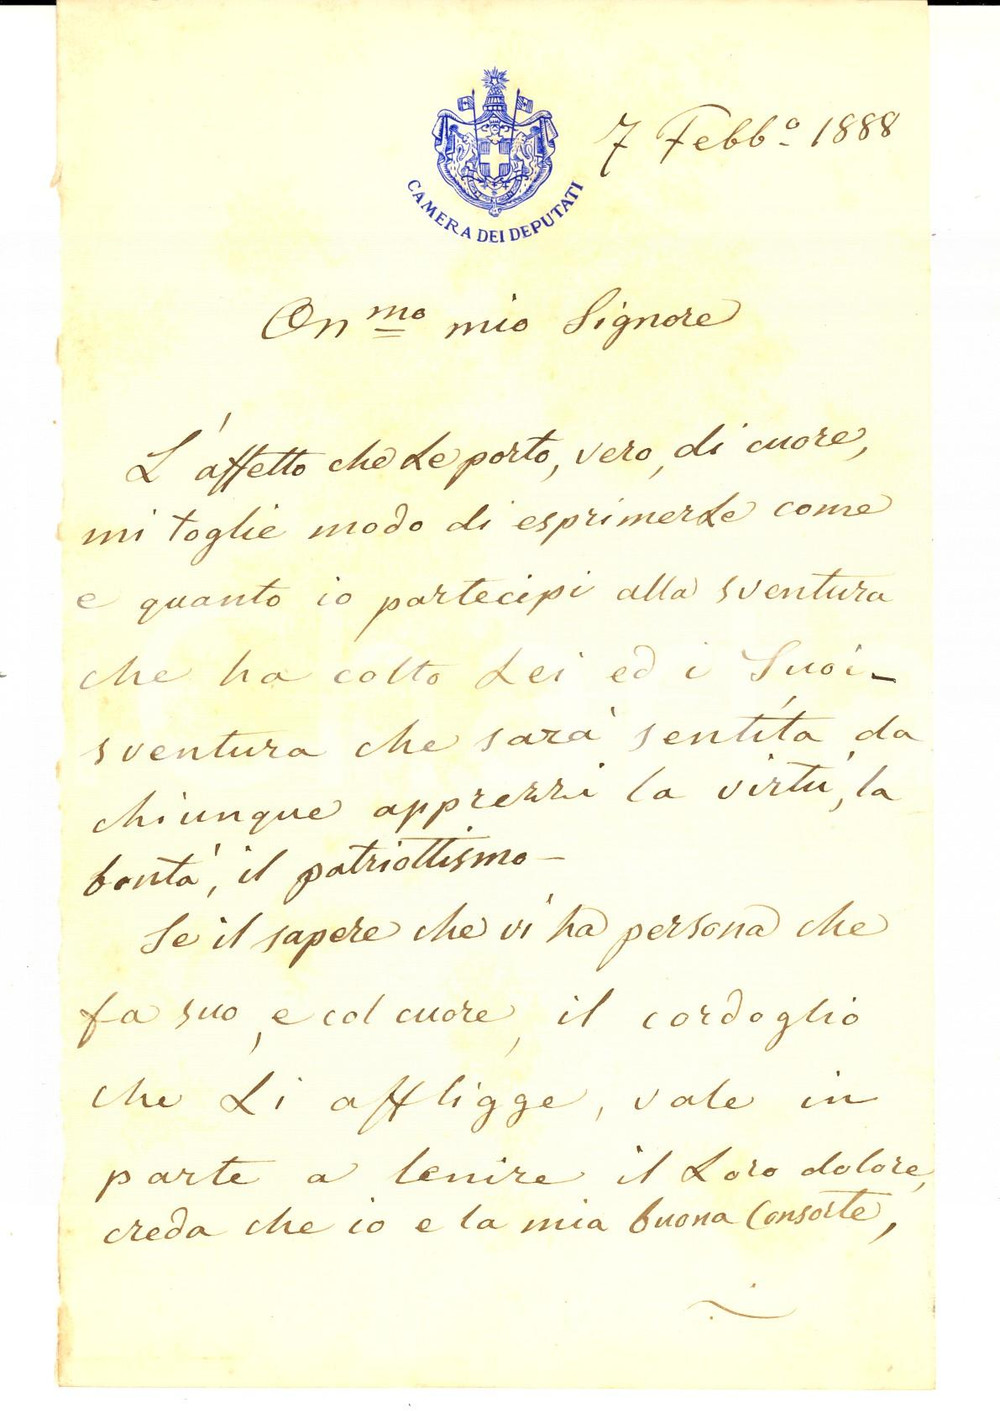 7 Febb.º 1888
CAMERA DEI DEPUTATI
On.mo mio Signore
L'affetto che Le porto, vero, di cuore,
mi toglie modo di esprimerLe come
e quanto io partecipi alla sventura
che ha colto Lei ed i Suoi –
sventura che sarà sentita da
chiunque apprezzi la virtù, la
bontà, il patriottismo –
Se il sapere che vi ha persona che
fa suo, e col cuore, il cordoglio
che Li affligge, vale in
parte a lenire il Loro dolore,
creda che io e la mia buona Consorte,